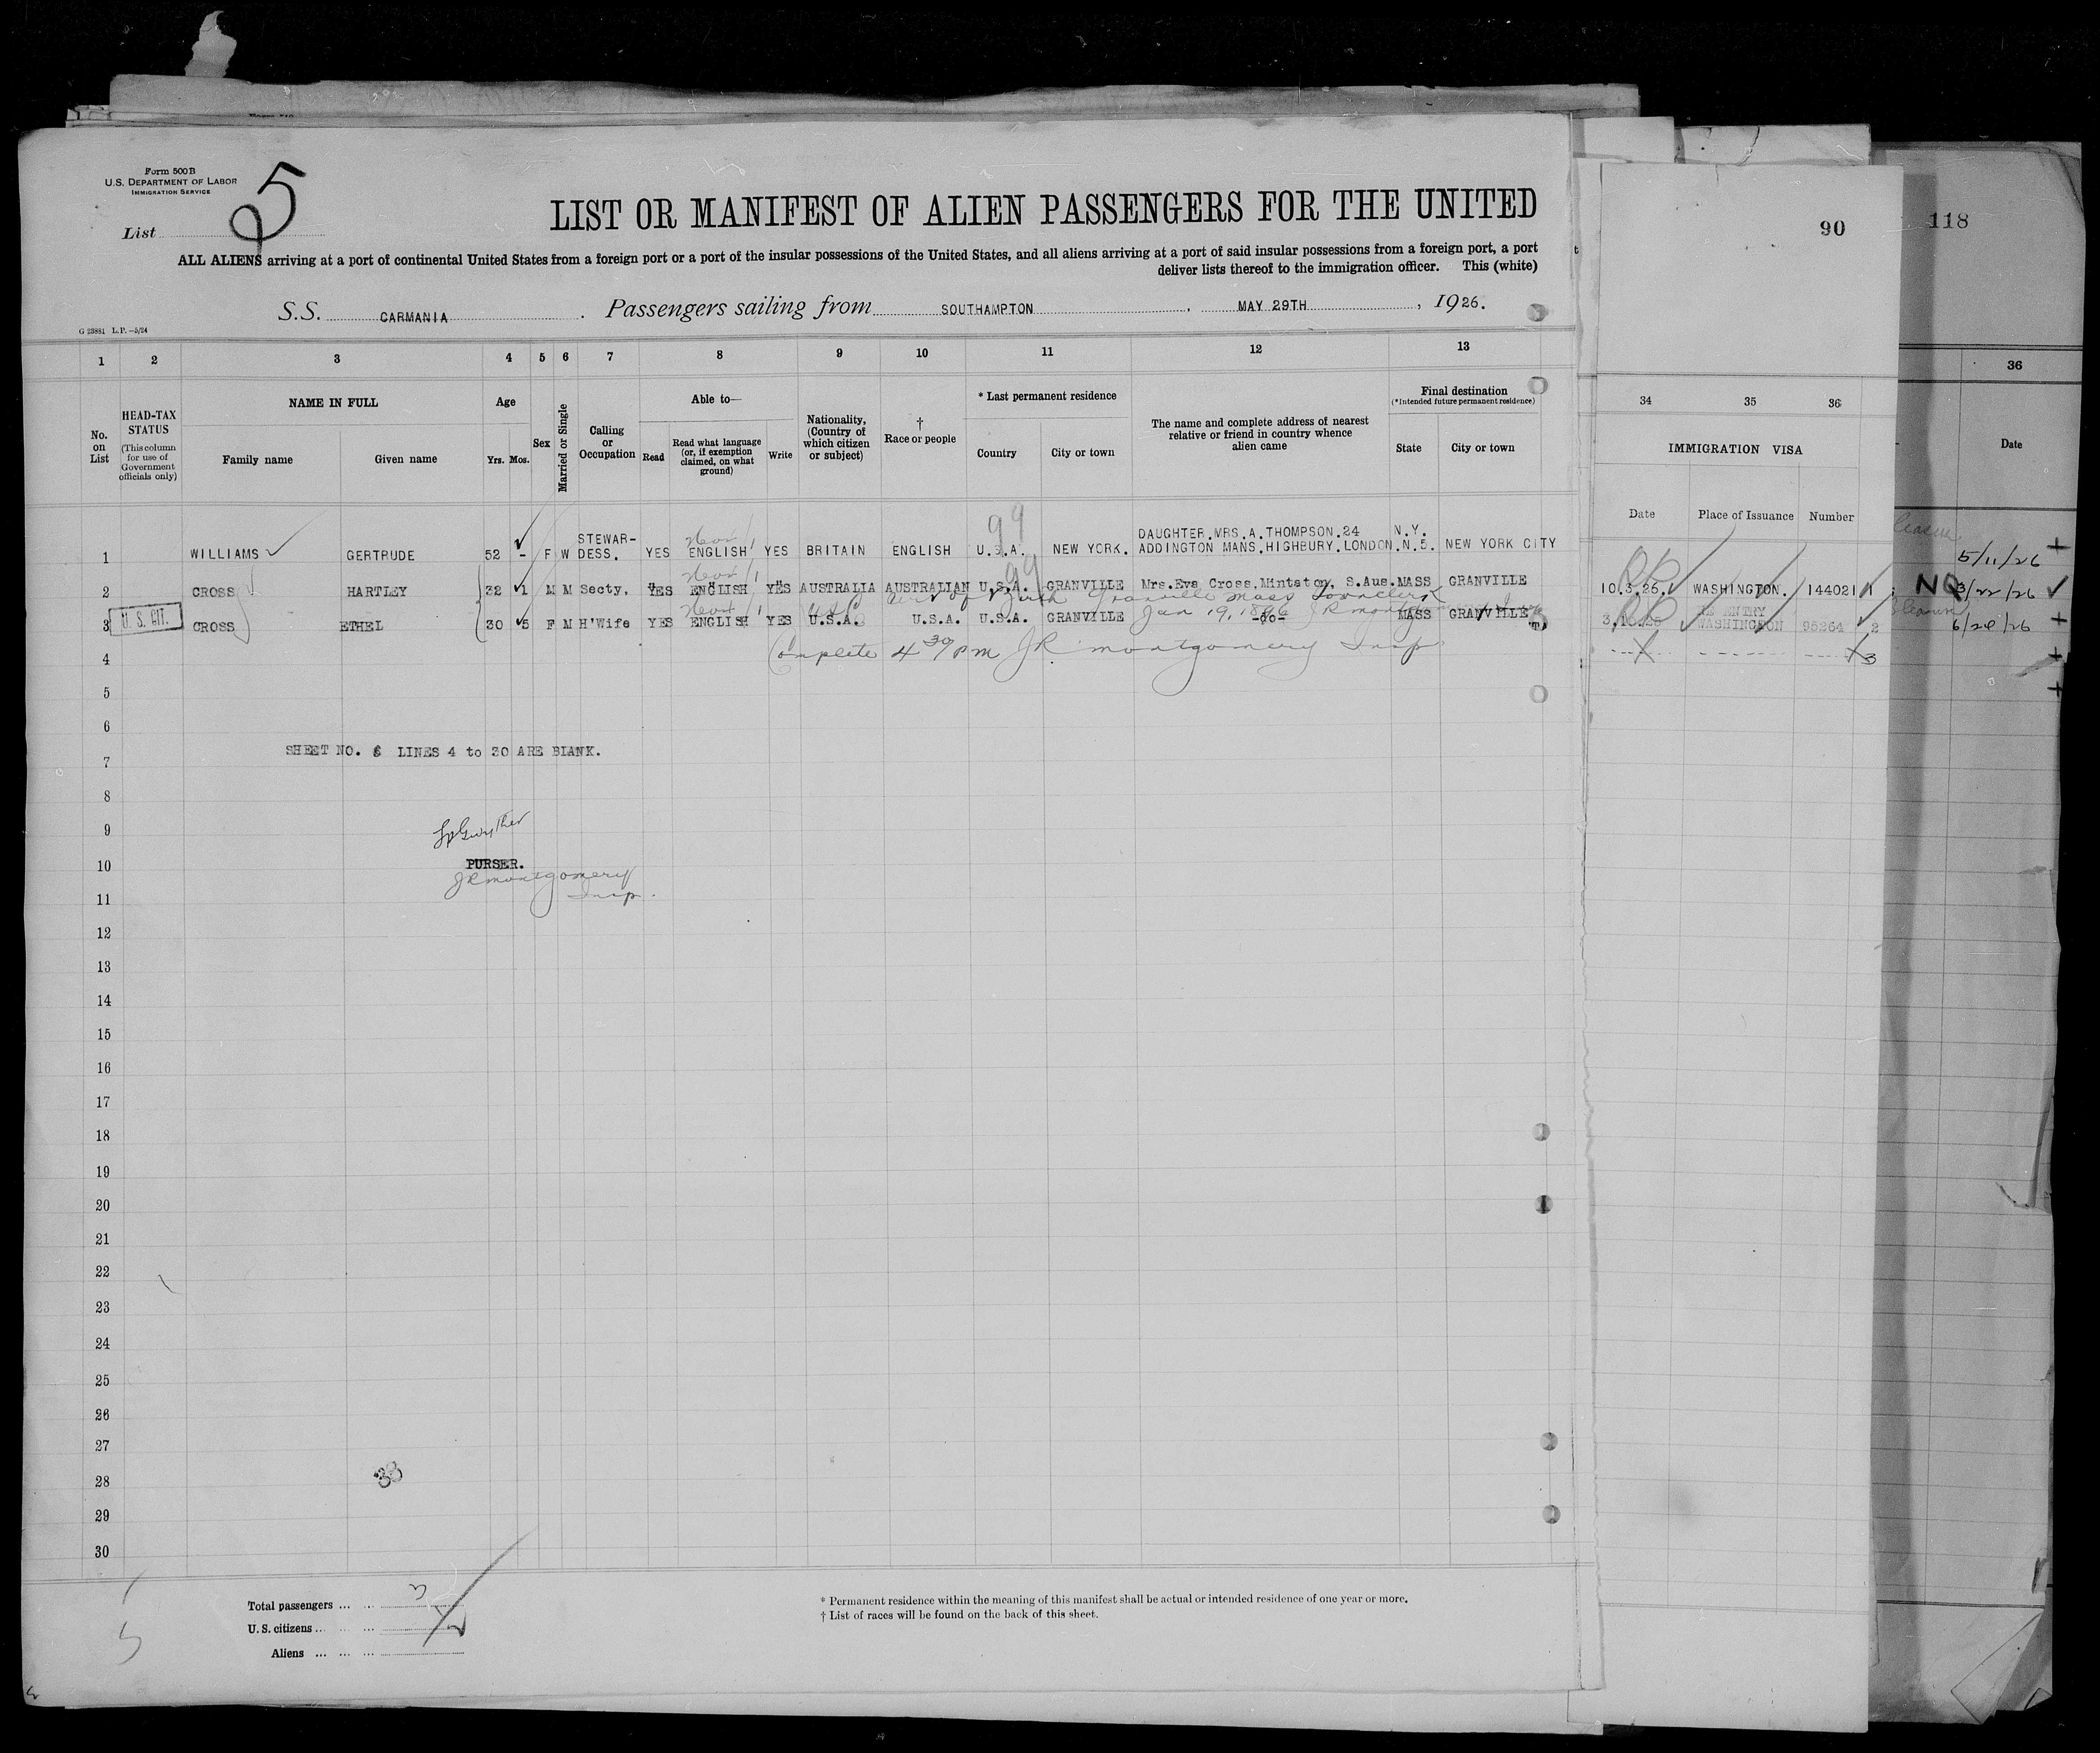 Form 500 B
U.S. DEPARTMENT OF LABOR
IMMIGRATION SERVICE
List 5
LIST OR MANIFEST OF ALIEN PASSENGERS FOR THE UNITED
ALL ALIENS arriving at a port of continental United States from a foreign port or a port of the insular possessions of the United States, and all aliens arriving at a port of said insular possessions from a foreign port, a port
deliver lists thereof to the immigration officer. This (white)
S.S. CARMANIA. Passengers sailing from SOUTHAMPTON, MAY 29TH, 1926.
G 23881 L.P.—5/24
90
118
1 2 3 4 5 6 7 8 9 10 11 12 13
34 35 36
36
No. on List
HEAD-TAX STATUS
(This column for use of Government officials only)
NAME IN FULL
Family name Given name
Age
Yrs. Mos.
Sex
Married or Single
Calling or Occupation
Able to—
Read
Read what language (or, if exemption claimed, on what ground)
Write
Nationality, (Country of which citizen or subject)
† Race or people
* Last permanent residence
Country City or town
The name and complete address of nearest relative or friend in country whence alien came
Final destination
(*Intended future permanent residence)
State City or town
IMMIGRATION VISA
Date Place of Issuance Number
Date
99
1 WILLIAMS GERTRUDE 52 - F W STEWARDESS. YES ENGLISH YES BRITAIN ENGLISH U.S.A. NEW YORK. DAUGHTER.MRS.A.THOMPSON.24 ADDINGTON MANS.HIGHBURY.LONDON.N.5. N.Y. NEW YORK CITY
5/11/26
99
2 CROSS HARTLEY 32 1 M M Secty. YES ENGLISH YES AUSTRALIA AUSTRALIAN U.S.A. GRANVILLE Mrs.Eva Cross.Mintaton, S.Aus. MASS GRANVILLE
10.3.26. WASHINGTON. 144021 1
NQ 3/22/26
Granville Mass
U. S. CIT.
3 CROSS ETHEL 30 5 F M H'Wife YES ENGLISH YES U.S.A. U.S.A. U.S.A. GRANVILLE -do- MASS GRANVILLE
Jan 19, 1896
RE ENTRY
WASHINGTON 95264 2
3
Complete 4 30 PM JR Montgomery Insp
4
5
6
SHEET NO. 6 LINES 4 to 30 ARE BLANK.
7
8
9
PURSER.
10
JR Montgomery
Insp.
11
12
13
14
15
16
17
18
19
20
21
22
23
24
25
26
27
28
38
29
30
Total passengers ... ...
U. S. citizens ... ...
Aliens ... ... ...
* Permanent residence within the meaning of this manifest shall be actual or intended residence of one year or more.
† List of races will be found on the back of this sheet.